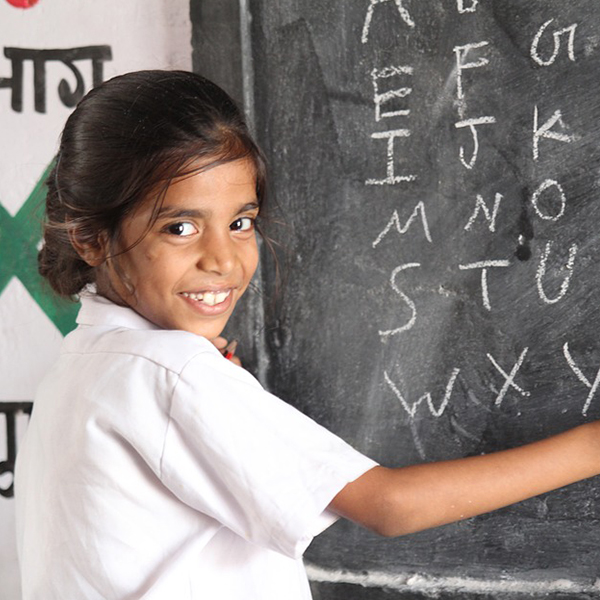 A
E F G
I J K
M N O
S T U
W X Y